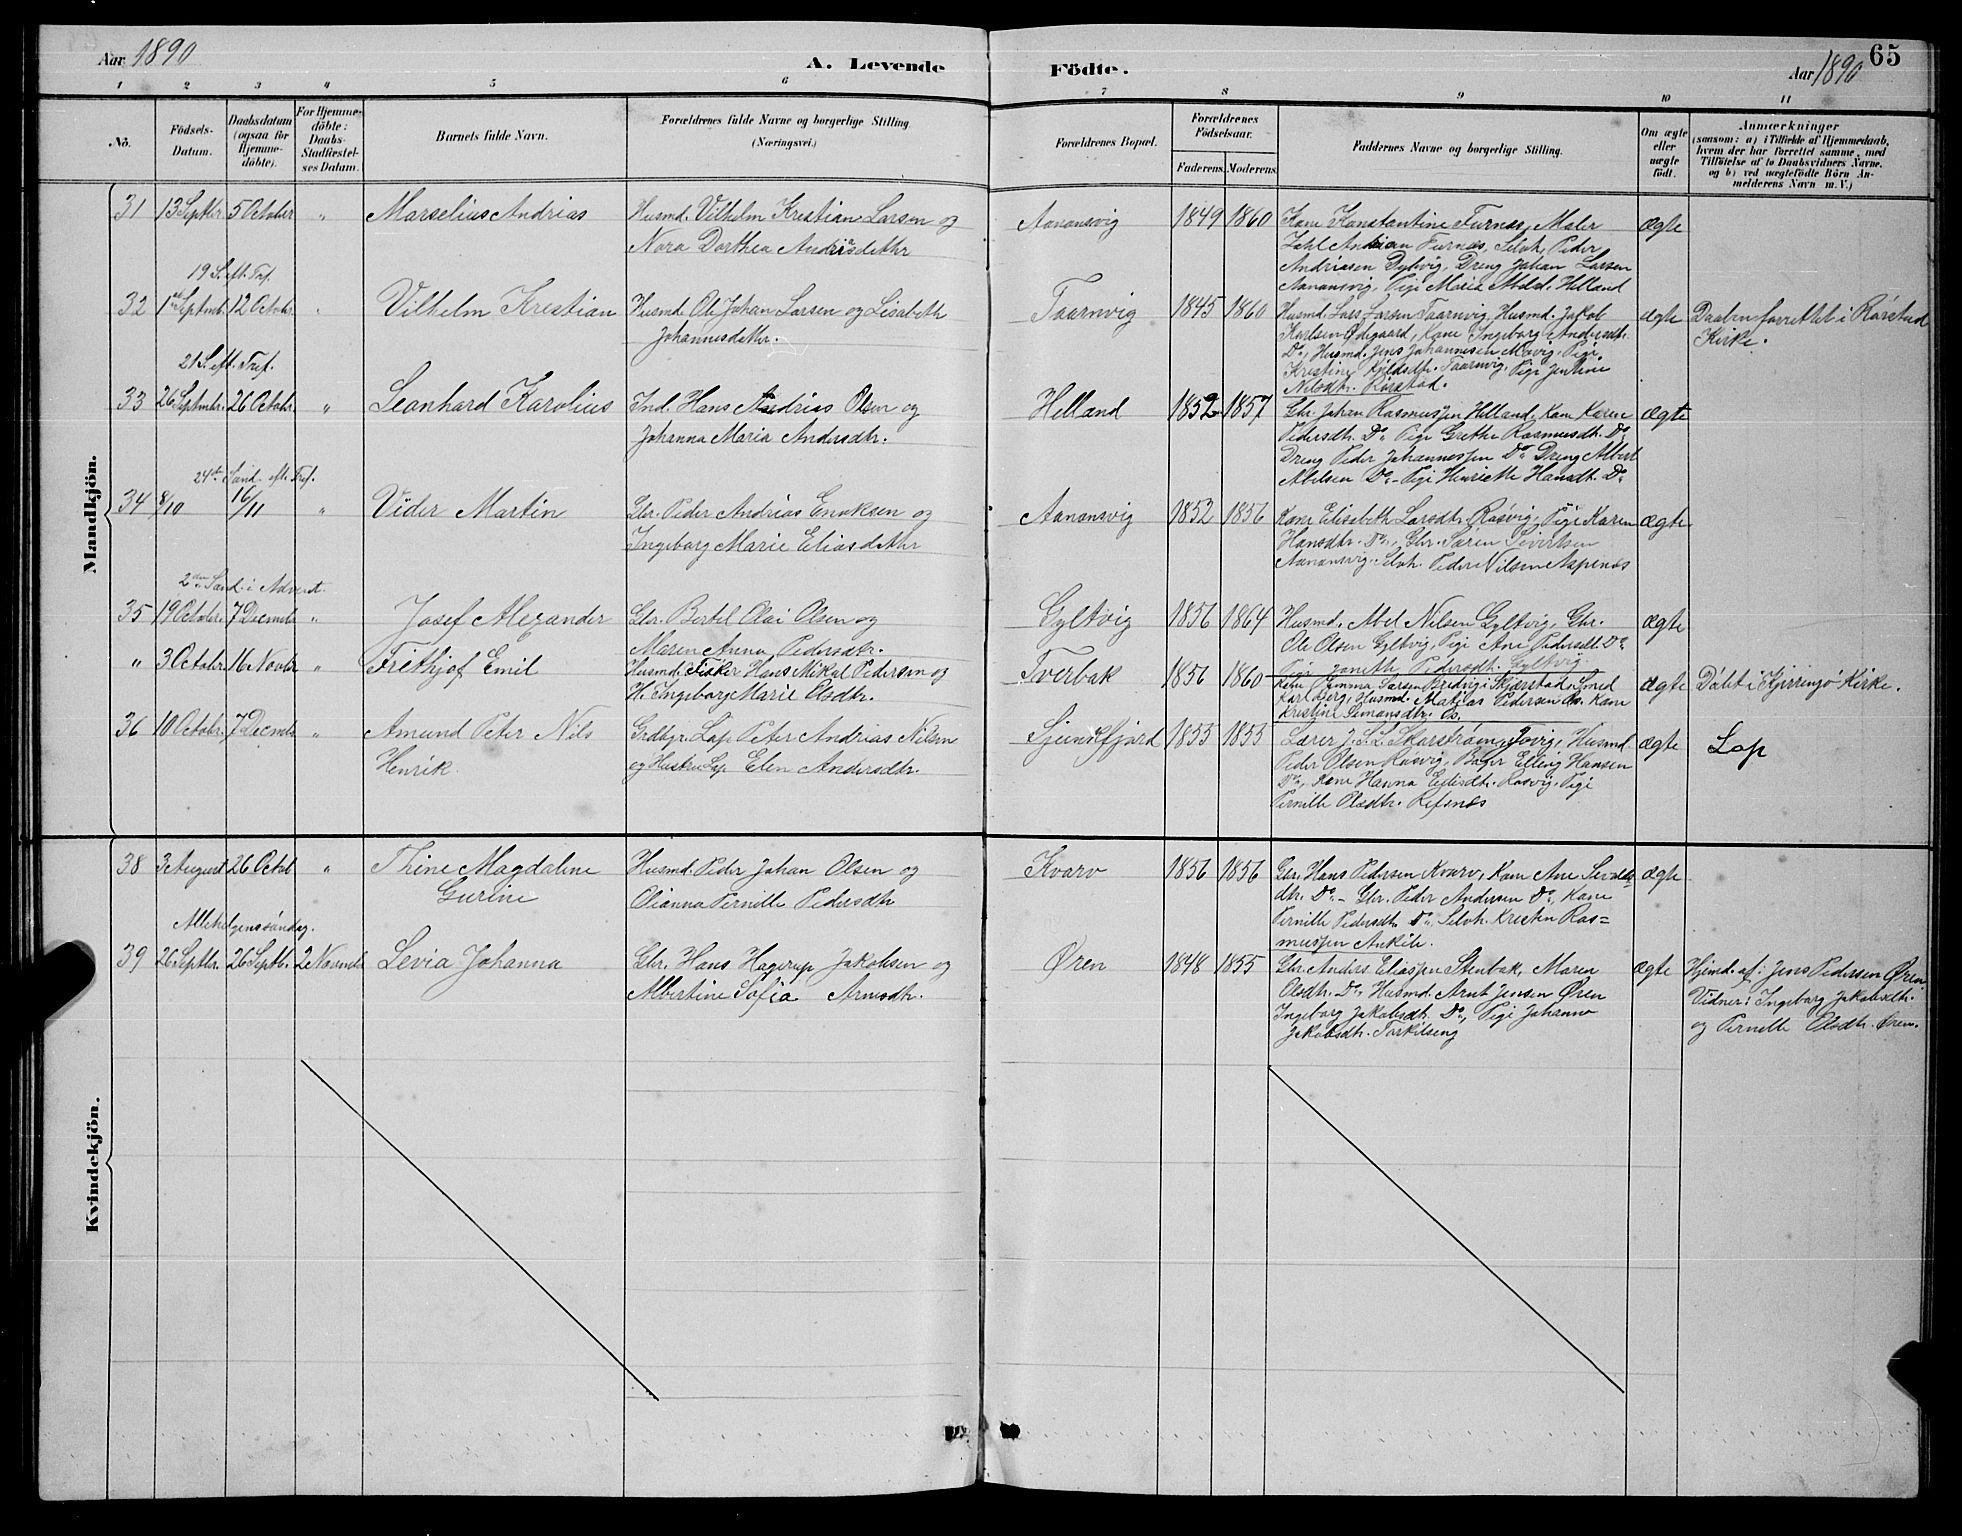 Aar 1890
A. Levende
Födte.
Aar 1890
65
1 2 3 4 5 6 7 8 9 10 11
No.
Födsels-
Datum.
Daabsdatum
(ogsaa for
Hjemme-
döbte).
For Hjemme-
döbte:
Daabs-
Stadfæstel-
ses Datum.
Barnets fulde Navn.
Forældrenes fulde Navne og borgerlige Stilling
(Næringsvei.)
Forældrenes Bopæl.
Forældrenes
Födselsaar.
Faderens. Moderens.
Faddernes Navne og borgerlige Stilling.
Om ægte
eller
uægte
födt.
Anmærkninger
(saasom: a) i Tilfælde af Hjemmedaab,
hvem der har forrettet samme, med
Tilföielse af to Daabsvidners Navne,
og b) ved uægtefödte Börn An-
melderens Navn m. V.)
Mandkjön.
31 13 Septbr 5 October " Marselius Andrias
Husmd. Vilhelm Kristian Larsen og
Nora Dorthea Andriasdattr
Aanansvig 1849 1860
Kone Konstantine Furnæs, Maler
Andrian Furnæs, Selvh. Peder
Andriasen Gyltvig, Dreng Johan Larsen
Aanansvig, Pige Marie Helland
ægte
19 S. eft. Tref.
32 1ste Septmb. 12 Octobr. " Vilhelm Krestian
Husmd. Ole Johan Larsen og Lisabeth
Johannesdattr.
Taarnvig 1845 1860
Husmd. Lars Larsen Taarnvig, Husmd. Jakob
Karlsen Ødegaard, Kone Ingeborg Andersdtr.
Do, Husmd. Jens Johannesen Movig, Pige
Kristine Taarnvig, Pige Jentine
Nilsdtr. Rørstad.
ægte
Daaben forrettet i Rørstad
Kirke.
21 S. eft. Tref.
33 26 Septmbr. 26 Octobr. " Leonhard Karolius
Ind. Hans Andrias Olsen og
Johanna Maria Andersdtr.
Helland 1852 1857
Gbr. Johan Rasmussen Helland, Kone Karen
Pedersdtr. Do. Pige Grethe Rasmusdtr. Do
Dreng Peder Johannessen Do Dreng Albert
Abelsen Do - Pige Henriette Hansdtr. Do
ægte
24de Sønd. eft. Tref.
34 8/10 16/11 " Vider Martin
Gbr. Peder Andrias Enoksen og
Ingeborg Marie Eliasdattr
Aanansvig 1852 1856
Kone Elisabeth Larsdtr. Røsvig, Pige Karen
Hansdtr. Do, Gbr. Søren Sivertsen
Aanansvig. Selvh. Peder Nilsen Aspenæs
ægte
2den Sønd. i Advent.
35 19 Octobr. 7 Decmb " Josef Alexander
Gbr. Bertel Olai Olsen og
Maren Anna Pedersdtr.
Gyltvig 1856 1864
Husmd. Abel Nilsen Gyltvig, Gbr.
Ole Olsen Gyltvig, Pige Ane Pedersdtr Do
Pige Janette Pedersdtr. Gyltvig.
ægte
" 3 Octobr. 16 Novbr " Frithjof Emil
Husmd. Fisker Hans Mikal Pedersen og
H. Ingeborg Marie Olsdtr.
Tverbak 1856 1860
Kone Emma Larsen Bredvig i Skjærstad, Smed
Karl Berg, Husmd. Matias Pedersen Os. Kone
Kristine Simonsdtr. Os.
ægte
Døbt i Kjerringø Kirke.
36 10 Octobr. 7 Decmb " Amund Peter Nils
Henrik.
Grdbgr. Lap Peter Andrias Nilsen
og Hustru Lap Elen Andersdtr.
Sjunkfjord 1855 1855
Lærer J. S. L. Skarstrøm, Tovig, Husmd.
Peder Olsen Røsvig, Elling Hansen
Do, Kone Hanna Røsvig. Pige
Pernille Olsdtr. Refsnæs
ægte
Lap
Kvindekjön.
38 3 August 26 Octob " Thine Magdalene
Gurine
Husmd. Peder Johan Olsen og
Olianna Pernille Pedersdtr
Kvarv 1856 1856
Gbr. Hans Pedersen Kvarv, Kone Ane
dtr. Do - Gbr. Peder Andersen Do, Kone
Pernille Pedersdtr. Do, Selvh. Kresten Ras=
mussen Ankile.
ægte
Allehelgenssøndag.
39 26 Septbr. 26 Septb. 2 Novmb Levia Johanna
Gbr. Hans Hagerup Jakobsen og
Albertine Sofia Arnsdtr.
Øren 1848 1855
Gbr. Anders Eliassen Stenbak, Maren
Olsdtr. Do, Husmd. Arnt Jensen Øren
Ingeborg Jakobsdtr. Do, Pige Johanna
Jakobsdtr. Torkilseng
ægte
Hjemd. af: Jens Pedersen Øren
Vidner: Ingeborg Jakobsdtr.
og Pernille Olsdtr. Øren.